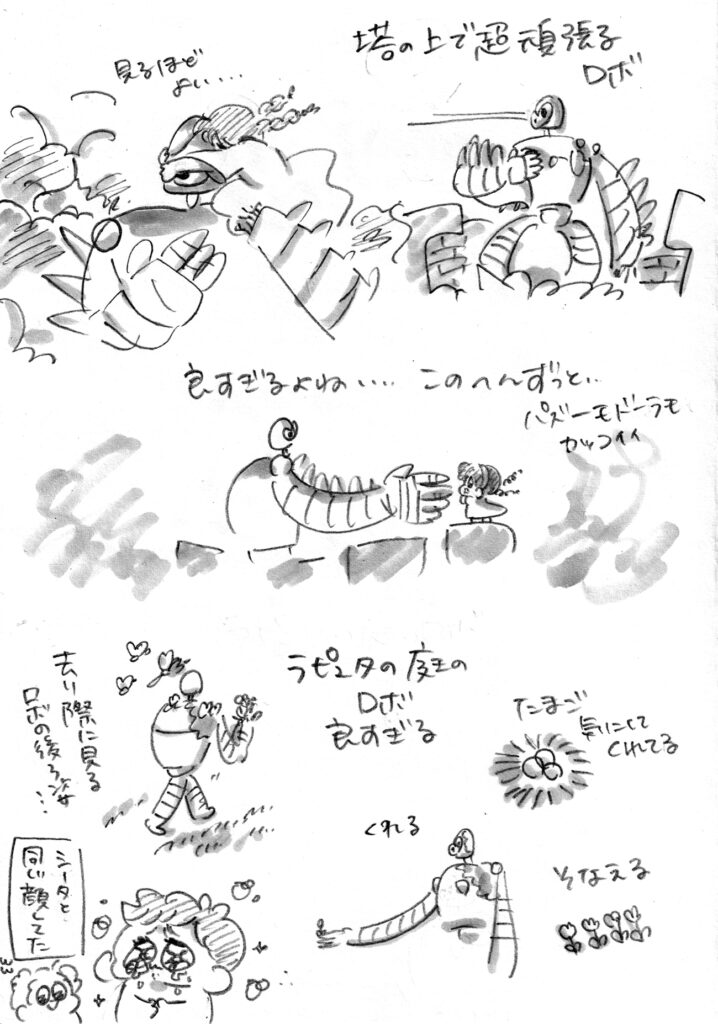 塔の上で超頑張る
ロボ
見るほど
よい....
良すぎるよね.... このへんずっと..
パズーモドーラモ
カッコイイ
ラピュタの庭の
ロボ
良すぎる
去り際に見る
ロボの後ろ姿...
たまご
気にして
くれてる
くれる
そなえる
シータと
同じ顔してた
33